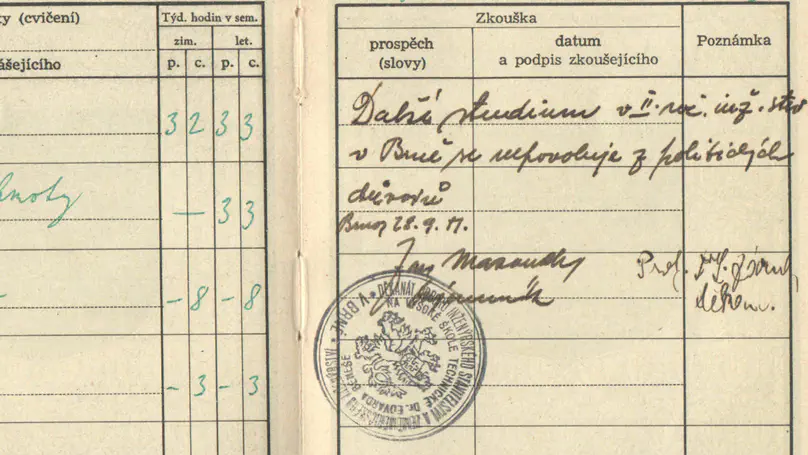 ty (cvičení)
ášejícího
Týd. hodin v sem.
zim.
let.
p. c. p. c.
3 2 3 3
— 3 3
- 8 - 8
- 3 - 3
Zkouška
prospěch
(slovy)
datum
a podpis zkoušejícího
Poznámka
Další studium v II. roč. inž. stav
v Brně se nepovoluje z politických
důvodů
Brno 28. 9. 51.
Prof.
děkan.
V BRNĚ * DĚKANÁT ODBORU INŽENÝRSKÉHO STAVITELSTVÍ A
NA VYSOKÉ ŠKOLE TECHNICKÉ Dr. EDVARDA BENEŠE